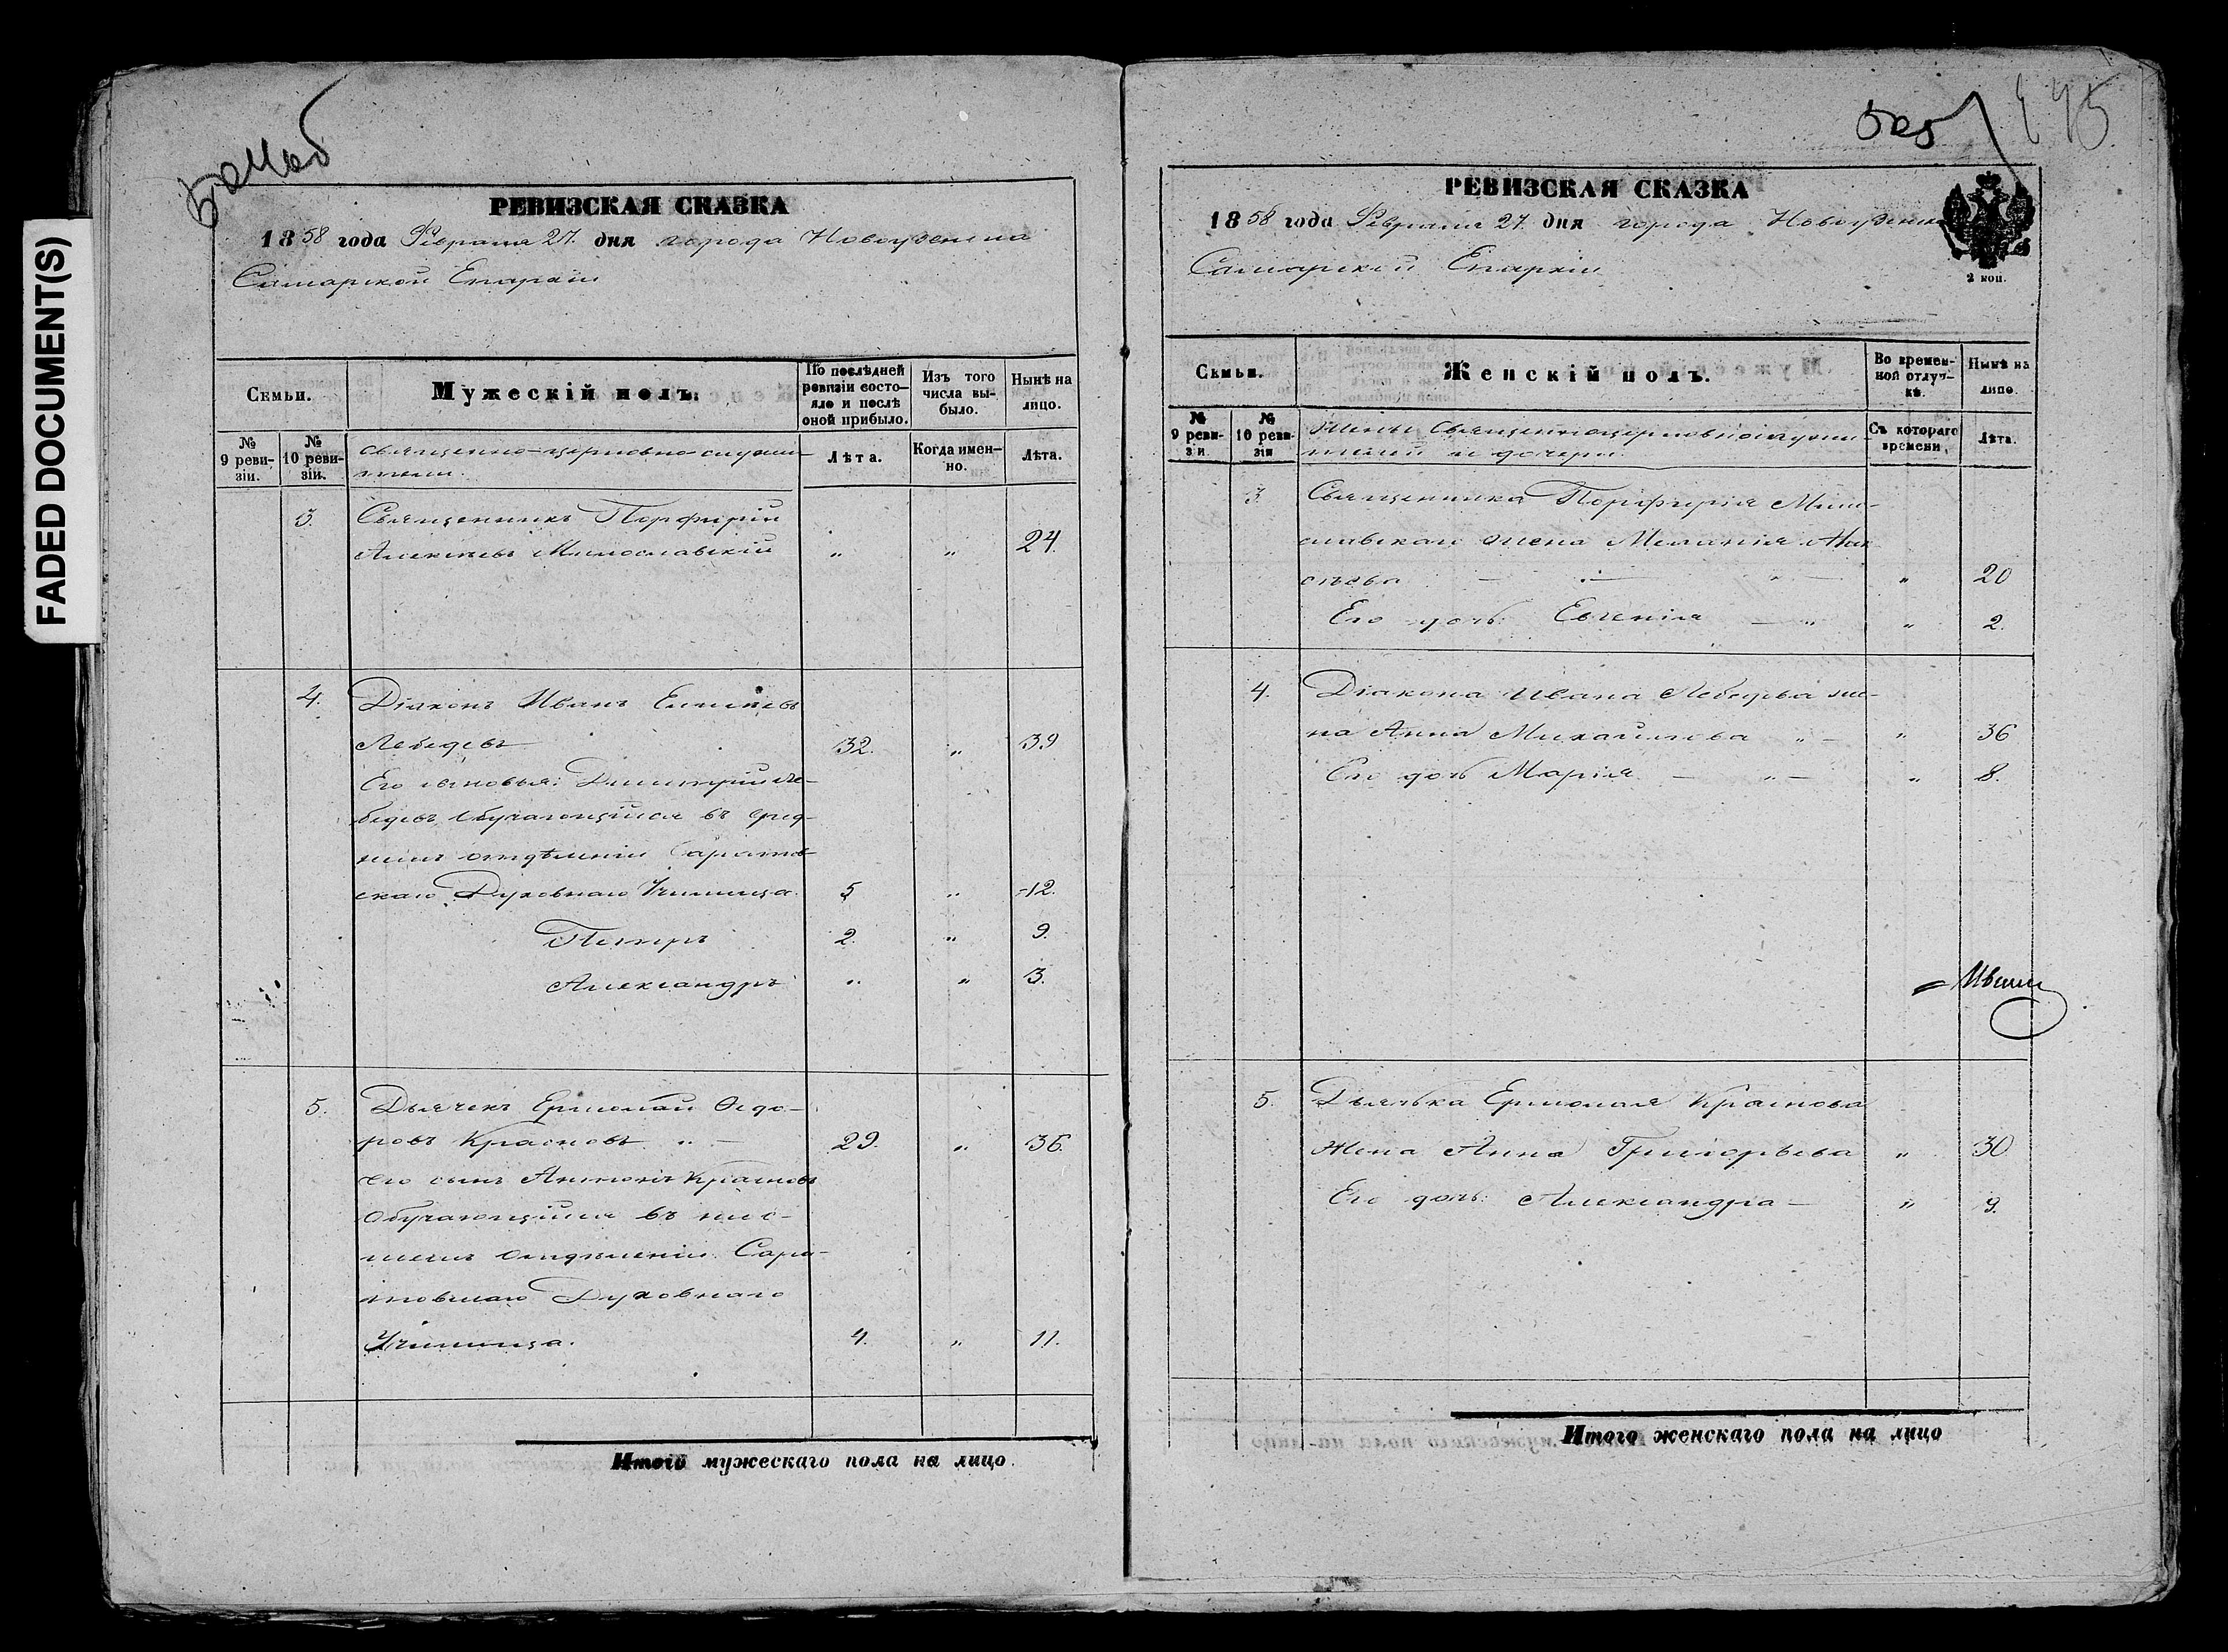 FADED DOCUMENT(S)
РЕВИЗСКАЯ СКАЗКА
1858 года Февраля 27. дня города Новоузенска
Самарской Епархіи
Семьи.
Мужескій полъ.
По послѣдней ревизіи состояло и послѣ оной прибыло.
Изъ того числа выбыло.
Нынѣ на лицо.
№ 9 ревизіи.
№ 10 ревизіи.
Священно-церковно-служи-
тели.
Лѣта.
Когда именно.
Лѣта.
3. Священникъ Порфирій
Алексѣевъ Милославскій " " 24.
4. Діаконъ Иванъ
Лебедевъ 32. " 39
Его сыновья: Димитрій Ле-
бедевъ обучающійся въ сред-
немъ отдѣленіи Саратов-
скаго Духовнаго Училища. 5 " 12.
Петръ 2. " 9.
Александръ " " 3.
5. Дьячекъ Ермолай Ѳедо-
ровъ Красновъ " — 29. " 36.
Его сынъ Антоній Красновъ
Обучающійся въ низ-
шемъ отдѣленіи Сара-
товскаго Духовнаго
Училища. 4. " 11.
Итого мужескаго пола на лицо.
195
РЕВИЗСКАЯ СКАЗКА
1858 года Февраля 27. дня города Новоузенска
Самарской Епархіи
2 коп.
Семьи.
Женскій полъ.
Во временной отлучкѣ.
Нынѣ на лицо.
№ 9 ревизіи.
№ 10 ревизія
Жены Священноцерковнослужи-
телей и дочери.
Съ котораго времени.
Лѣта.
3. Священника Порфирія Мило-
славскаго жена Меланія Алек
сѣева — " 20
Его дочь Евгенія — " " 2.
4. Діакона Ивана Лебедева же-
на Анна Михайлова " — " 36
Его дочь Марія — " — " 8.
5. Дьячка Ермолая Краснова
Жена Анна Григорьева " 30
Его дочь: Александра — " 9.
Итого женскаго пола на лицо